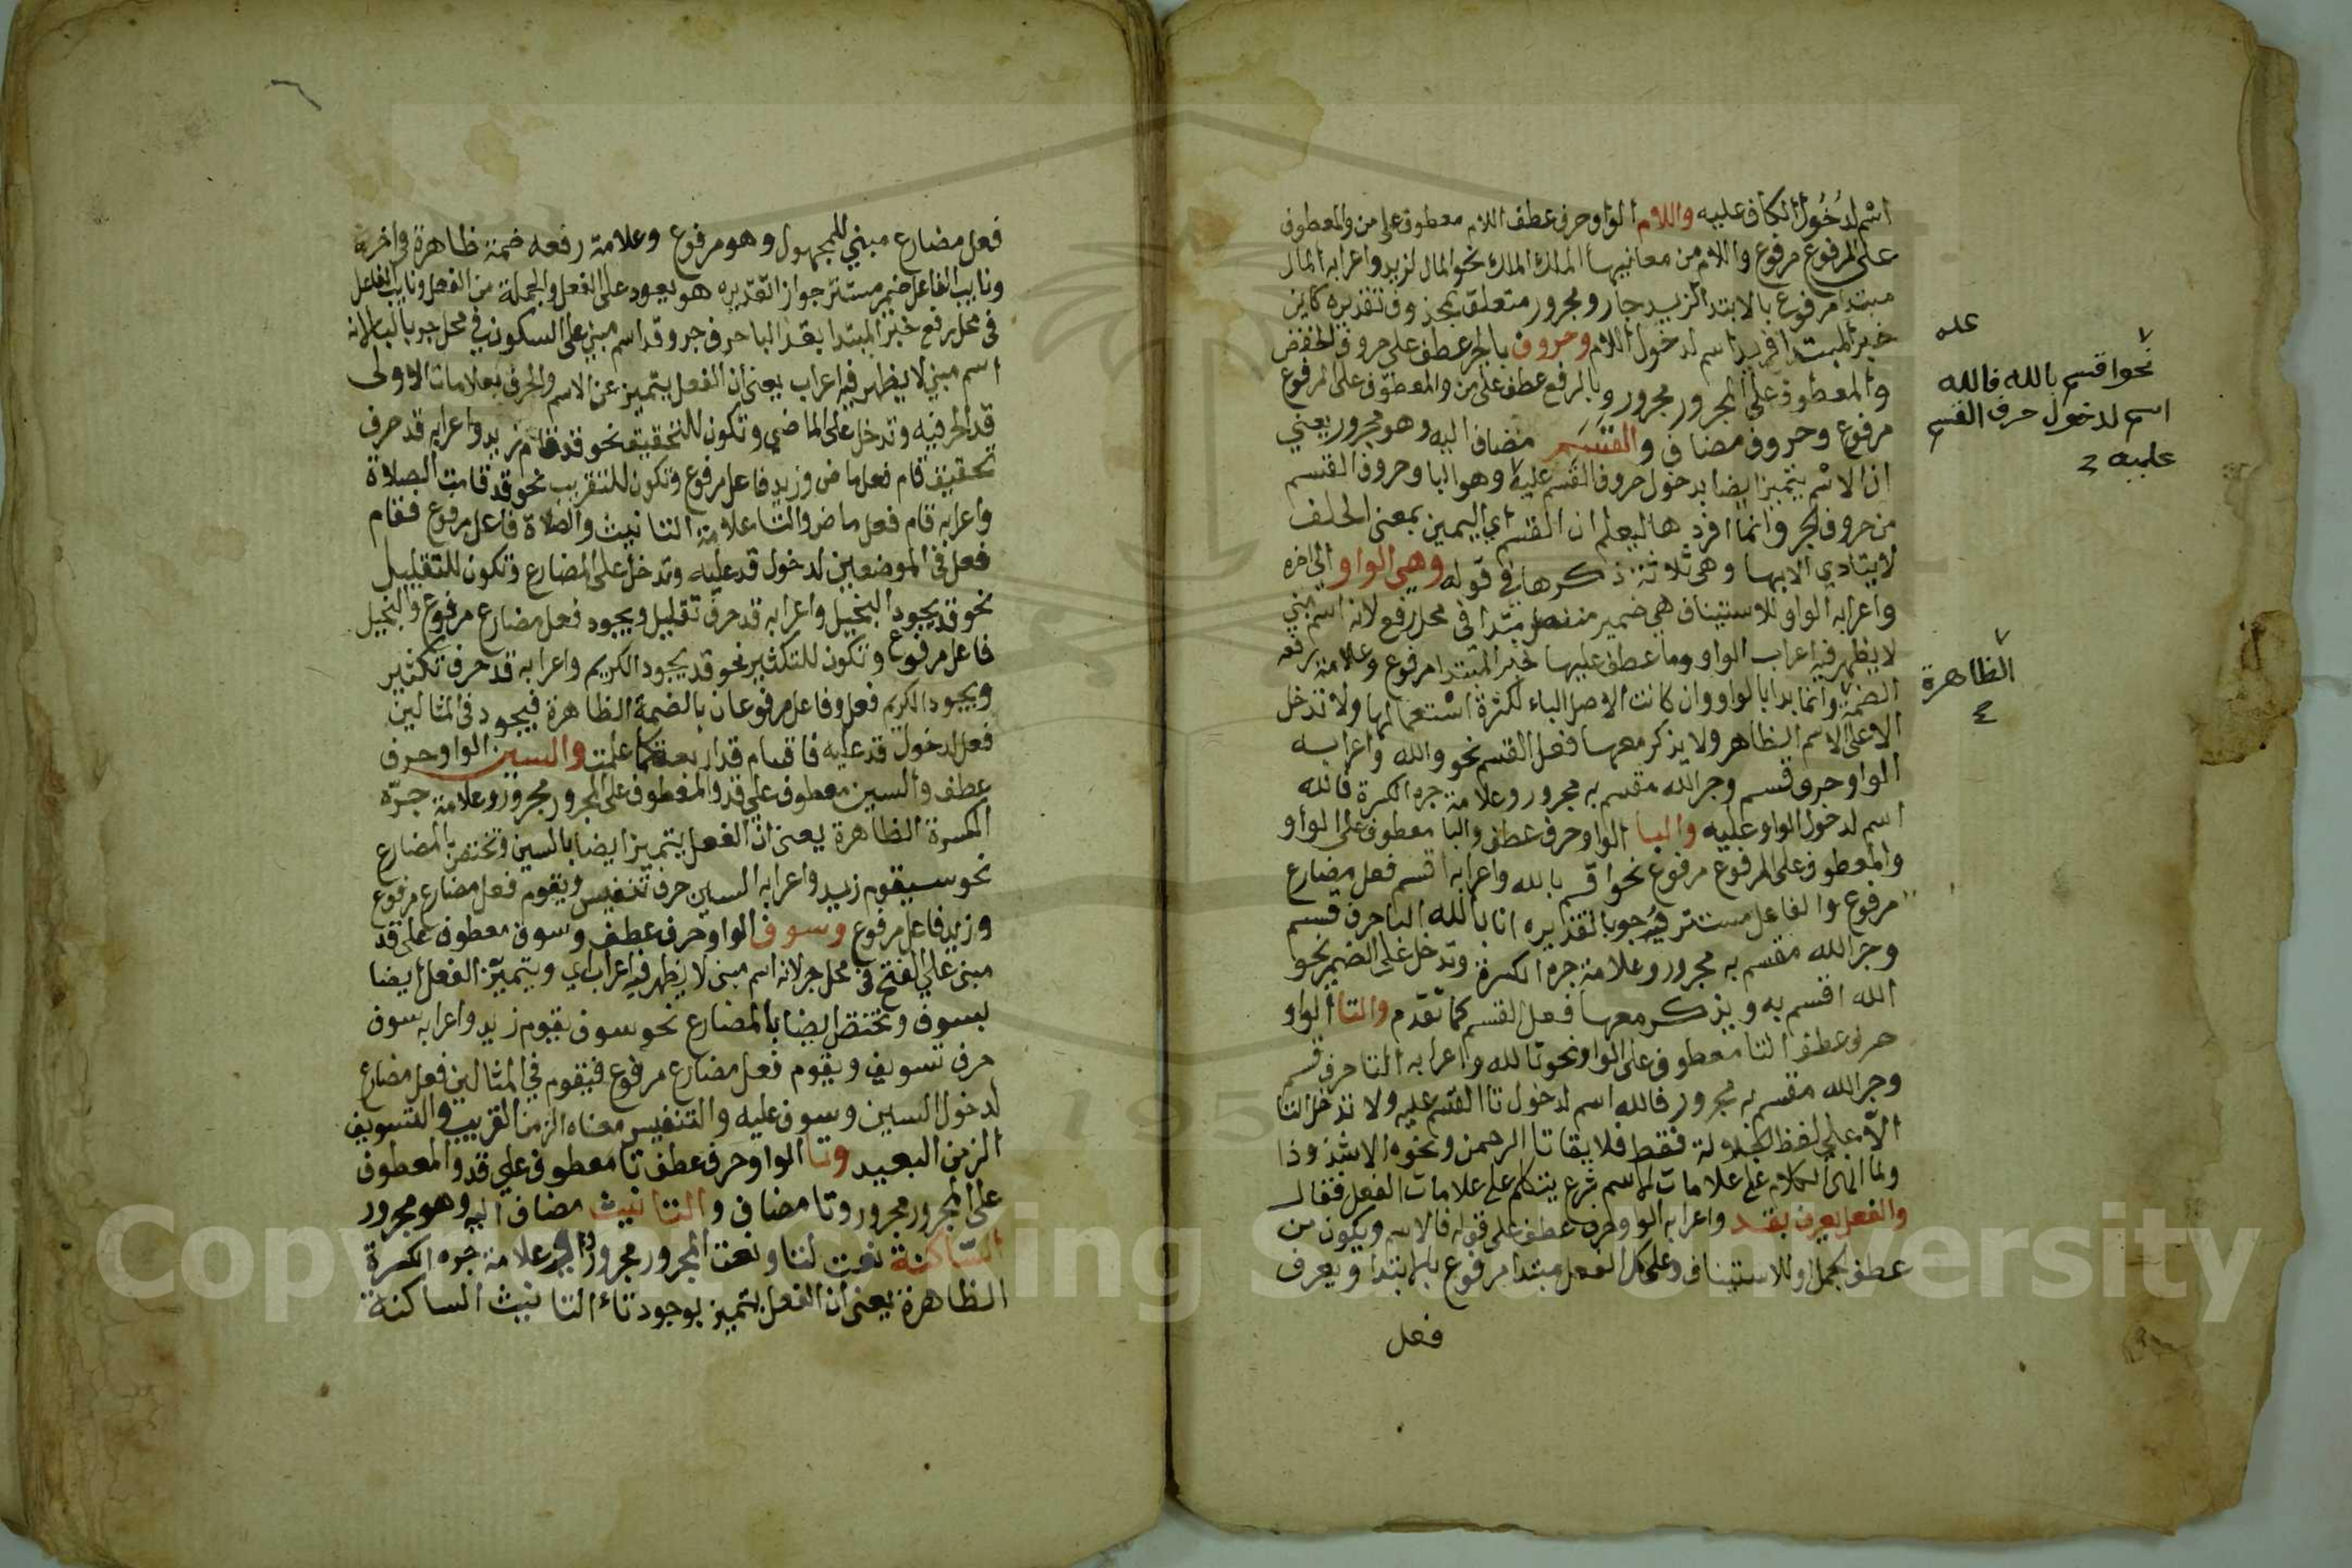 اسم لدخول الكاف عليه واللام الواو حرف عطف اللام معطوف على من والمعطوف
على المرفوع مرفوع واللام من معانيها الملك الملك نحو المال لزيد واعرابه المال
مبتدا مرفوع بالابتدا لزيد جار ومجرور متعلق بمحذوف تقديره كاين
خبر المبتدا فزيد اسم لدخول اللام وحروف بالجر عطف على حروف الخفض
والمعطوف على المجرور مجرور وبالرفع عطف على من والمعطوف على المرفوع
مرفوع وحروف مضاف والقسم مضاف اليه وهو مجرور يعني
ان الاسم يتميز ايضا بدخول حروف القسم عليه وهو البا وحروف القسم
من حروف الجر وانما افردها ليعلم ان القسم اي اليمين بمعنى الحلف
لا يتادي الا بها وهي ثلاثة ذكرها في قوله وهي الواو الى اخره
واعرابه الواو للاستيناف هي ضمير منفصل مبتدا في محل رفع لانه اسم مبني
لا يظهر فيه اعراب الواو وما عطف عليها خبر المبتدا مرفوع وعلامة رفعه
الضمة وانما بدا بالواو وان كانت الاصل الباء لكثرة استعمالها ولا تدخل
الا على الاسم الظاهر ولا يذكر معها فعل القسم نحو والله واعرابه
الواو حرف قسم وجر الله مقسم به مجرور وعلامة جره الكسرة فالله
اسم لدخول الواو عليه والبا الواو حرف عطف والبا معطوف على الواو
والمعطوف على المرفوع مرفوع نحو اقسم بالله واعرابه اقسم فعل مضارع
مرفوع والفاعل مستتر فيه وجوبا تقديره انا بالله البا حرف قسم
وجر الله مقسم به مجرور وعلامة جره الكسرة وتدخل على الضمير نحو
الله اقسم به ويذكر معها فعل القسم كما تقدم والتا الواو
حرف عطف التا معطوف على الواو نحو تالله واعرابه التا حرف قسم
وجر الله مقسم به مجرور فالله اسم لدخول تا القسم عليه ولا تدخل التا
الا على لفظ الجلالة فقط فلا يقا تا الرحمن ونحوه الا شذوذا
ولما انهى الكلام على علامات الاسم شرع يتكلم على علامات الفعل فقال
والفعل يعرف بقد واعرابه الواو حرف عطف على قوله فالاسم ويكون من
عطف الجمل او للاستيناف وعلى كل الفعل مبتدا مرفوع بالابتدا ويعرف
فعل
عله
نحو اقسم بالله فالله
اسم لدخول حرف القسم
عليه
الظاهرة
فعل مضارع مبني للمجهول وهو مرفوع وعلامة رفعه ضمة ظاهرة في اخره
ونايب الفاعل ضمير مستتر جوازا تقديره هو يعود على الفعل والجملة من الفعل ونايب الفاعل
في محل رفع خبر المبتدا بقد البا حرف جر وقد اسم مبني على السكون في محل جر بالبا لانه
اسم مبني لا يظهر فيه اعراب يعني ان الفعل يتميز عن الاسم والحرف بعلامات الاولى
قد الحرفيه وتدخل على الماضي وتكون للتحقيق نحو قد قام زيد واعرابه قد حرف
تحقيق قام فعل ماض وزيد فاعل مرفوع وتكون للتقريب نحو قد قامت الصلاة
واعرابه قام فعل ماض والتا علامة التانيث والصلاة فاعل مرفوع فقام
فعل في الموضعين لدخول قد عليه وتدخل على المضارع وتكون للتقليل
نحو قد يجود البخيل واعرابه قد حرف تقليل ويجود فعل مضارع مرفوع والبخيل
فاعل مرفوع وتكون للتكثير نحو قد يجود الكريم واعرابه قد حرف تكثير
ويجود الكريم فعل وفاعل مرفوعان بالضمة الظاهرة فيجود في المثالين
فعل لدخول قد عليه فاقسام قد اربعة كما علمت والسين الواو حرف
عطف والسين معطوف على قد والمعطوف على المجرور مجرور وعلامة جره
الكسرة الظاهرة يعني ان الفعل يتميز ايضا بالسين وتختص بالمضارع
نحو سيقوم زيد واعرابه السين حرف تنفيس ويقوم فعل مضارع مرفوع
وزيد فاعل مرفوع وسوف الواو حرف عطف وسوف معطوف على قد
مبني على الفتح في محل جر لانه اسم مبني لا يظهر فيه اعراب اي ويتميز الفعل ايضا
بسوف وتختص ايضا بالمضارع نحو سوف يقوم زيد واعرابه سوف
حرف تسويف ويقوم فعل مضارع مرفوع فيقوم في المثالين فعل مضارع
لدخول السين وسوف عليه والتنفيس معناه الزمن القريب والتسويف
الزمن البعيد وتا الواو حرف عطف تا معطوف على قد والمعطوف
على المجرور مجرور وتا مضاف والتانيث مضاف اليه وهو مجرور
الساكنة نعت لتا ونعت المجرور مجرور وعلامة جره الكسرة
الظاهرة يعني ان الفعل يتميز بوجود تاء التانيث الساكنة